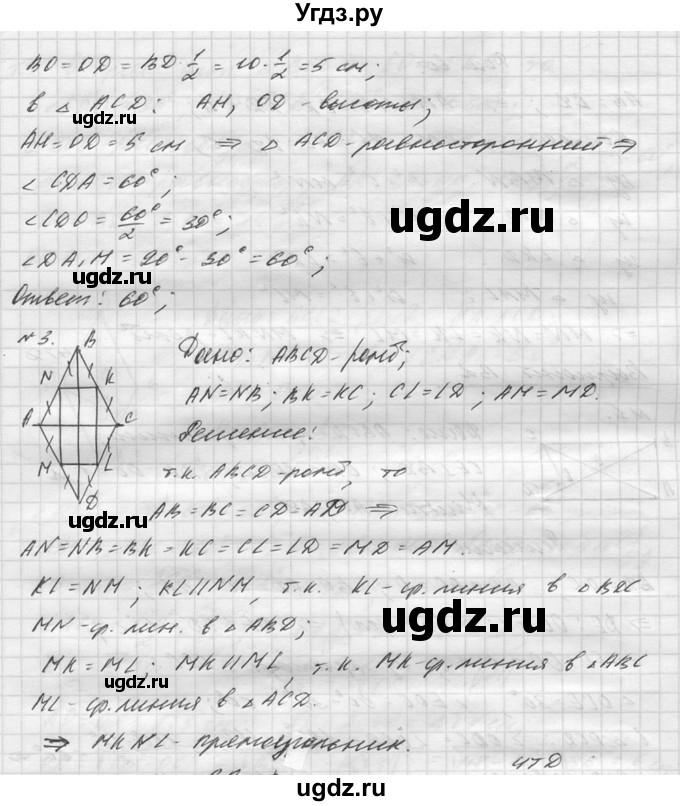 Угдз.ру
BO = OD = BD · 1/2 = 10 · 1/2 = 5 см;
в △ ACD: AH, OD - высоты;
ugdz.ru
AH = OD = 5 см ⇒ △ ACD - равносторонний ⇒
∠ CDA = 60°;
ugdz.ru
∠CDO = 60°/2 = 30°;
∠DA₁M = 90° - 30° = 60°;
ugdz.ru
Ответ: 60°;
№3.
B
N K
A C
M L
D
Дано: ABCD - ромб;
AN = NB; BK = KC; CL = LD; AM = MD.
Решение:
ugdz.ru
т.к. ABCD - ромб, то
ugdz.ru
AB = BC = CD = AD ⇒
AN = NB = BK = KC = CL = LD = MD = AM.
KL = NM; KL ∥ NM, т.к. KL - ср. линия в △
ugdz.ru
MN - ср. лин. в △ ABD;
MK = ML; MK ∥ ML, т.к. MK - ср. линия в △ ABC
ugdz.ru
ML - ср. линия в △ ACD.
ugdz.ru
⇒ MKNL - прямоугольник.
чтд
ugdz.ru